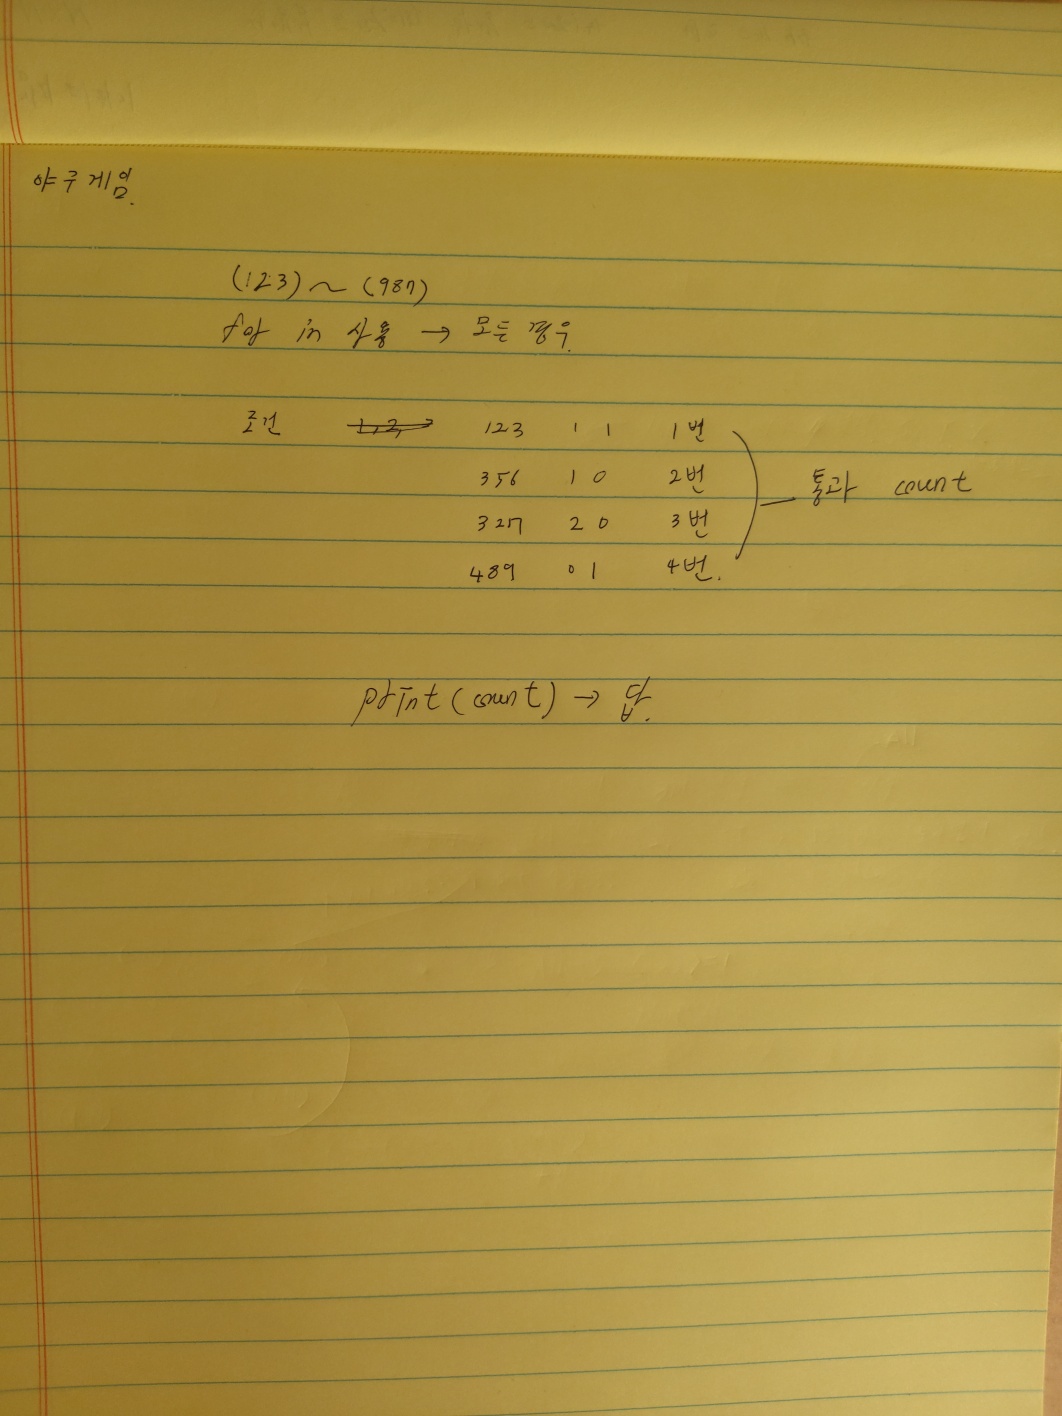 야구게임.
(123) ~ (987)
for in 사용 → 모든 경우.
조건 123 1 1 1번
356 1 0 2번
327 2 0 3번
489 0 1 4번.
통과 count
print(count) → 답.